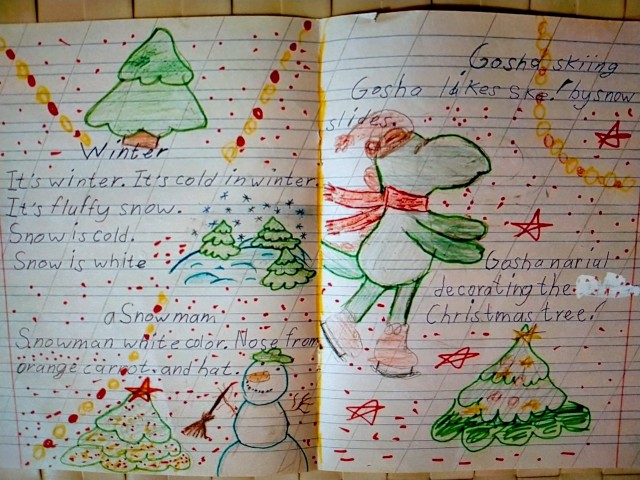 Winter
It's winter. It's cold in winter.
It's fluffy snow.
Snow is cold.
Snow is white
a Snowmam
Snowman white color. Nose from
orange carrot. and hat.
Gosha skiing
Gosha likes ske! by snow
slides.
Gosha narial
decorating the
Christmas tree!